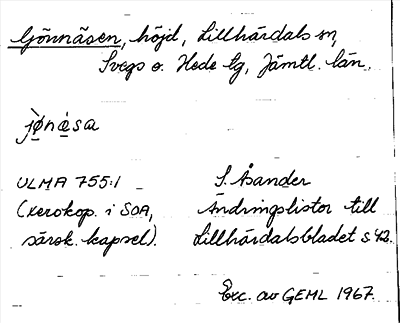 Gönnåsen, höjd, Lillhärdals sn,
Svegs o. Hede tg, Jämtl. län.
jø̀nåsa
ULMA 755:1 S. Åsander
(xerokop. i SOA, Ändringslistor till
särsk. kapsel). Lillhärdalsbladet s 42.
Exc. av GEML 1967.